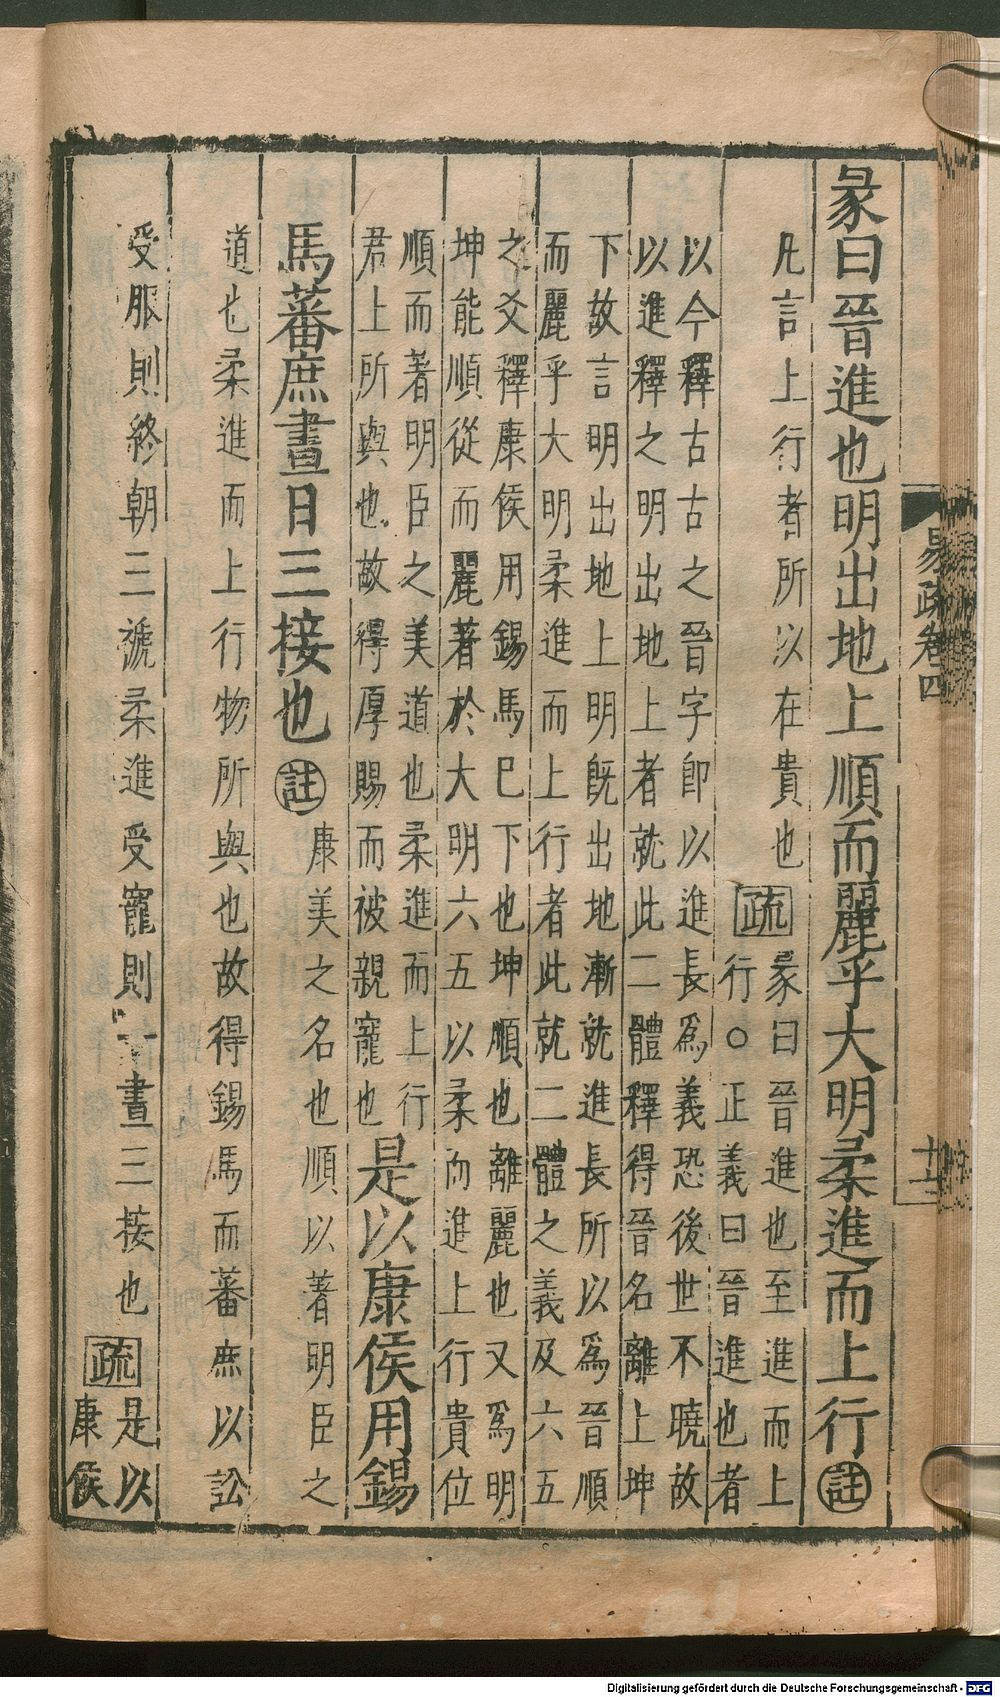 彖曰晉進也明出地上順而麗乎大明柔進而上行註
凡言上行者所以在貴也疏
彖曰晉進也至進而上
行○正義曰晉進也者
以今釋古古之晉字卽以進長爲義恐後世不曉故
以進釋之明出地上者就此二體釋得晉名離上坤
下故言明出地上明旣出地漸就進長所以爲晉順
而麗乎大明柔進而上行者此就二體之義及六五
之爻釋康侯用錫馬巳下也坤順也離麗也又爲明
坤能順從而麗著於大明六五以柔而進上行貴位
順而著明臣之美道也柔進而上行
君上所與也故得厚賜而被親寵也
是以康侯用錫
馬蕃庶晝日三接也註
康美之名也順以著明臣之
道也柔進而上行物所與也故得錫馬而蕃庶以訟
受服則終朝三褫柔進受寵則一晝三接也疏
是以
康侯
易疏卷四
十二
Digitalisierung gefördert durch die Deutsche Forschungsgemeinschaft - DFG